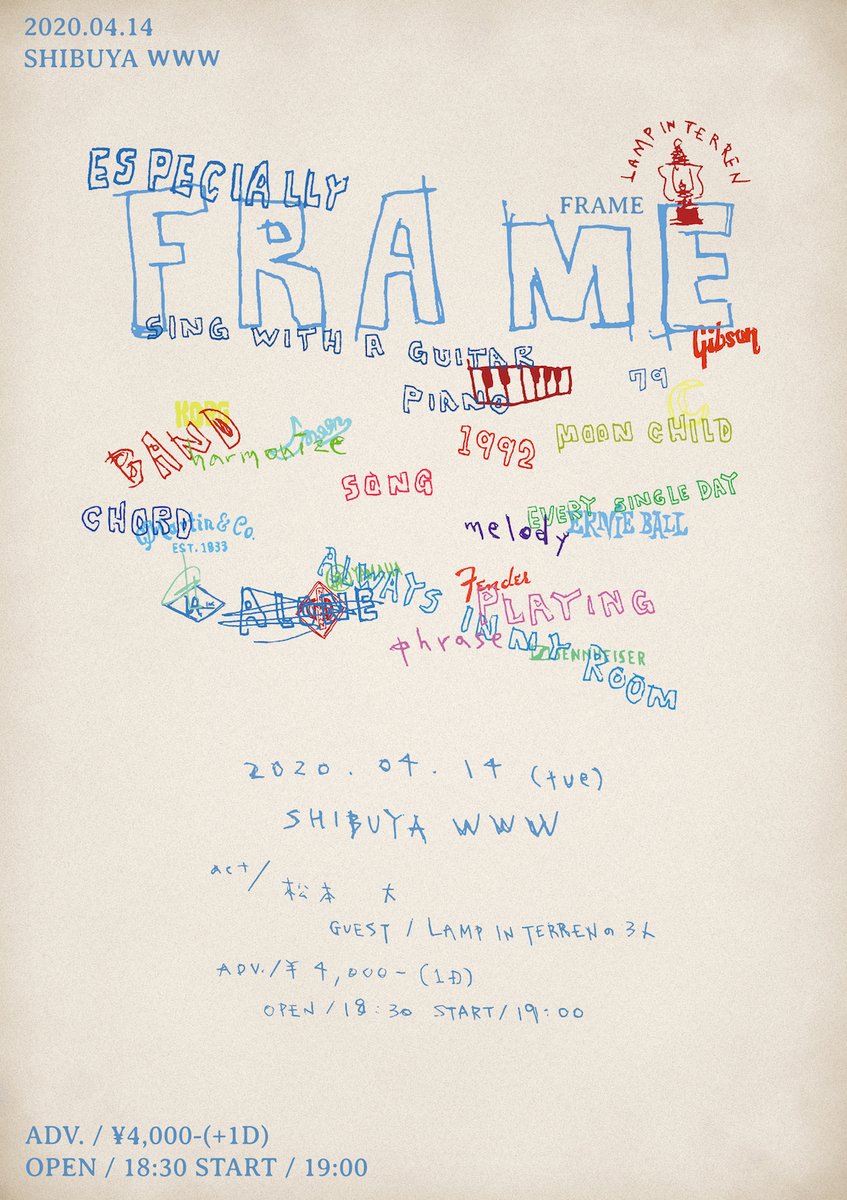 2020.04.14
SHIBUYA WWW
LAMP IN TERREN
ESPECIALLY
FRAME
FRAME
SING WITH A GUITAR
Gibson
PIANO
79
KORG
BAND
harmonize
1992
MOON CHILD
SONG
EVERY SINGLE DAY
CHORD
Martin & Co.
EST. 1833
melody
ERNIE BALL
ALWAYS
YAMAHA
Fender
PLAYING
ALONE
IN MY
phrase
SENNHEISER
ROOM
2020.04.14 (tue)
SHIBUYA WWW
act/
松本 大
GUEST / LAMP IN TERRENの3人
ADV./¥4,000-(1D)
OPEN/18:30 START/19:00
ADV. / ¥4,000-(+1D)
OPEN / 18:30 START / 19:00